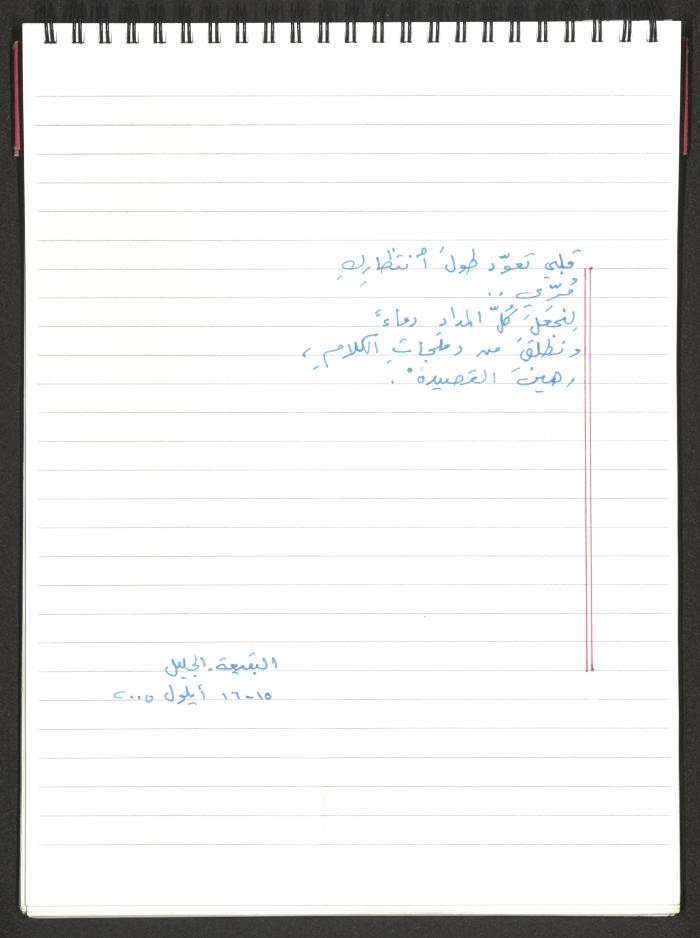 قلبي تعوّد طولَ اْنتظارِكِ
مُرّي ..
لِنجعَلَ كُلَّ المدادِ دماءً
ونطلقَ من دملجاتِ الكلامِ،
رهينَ القصيدةْ.
البقيعة. الجليل
١٥-١٦ أيلول ٢٠٠٥